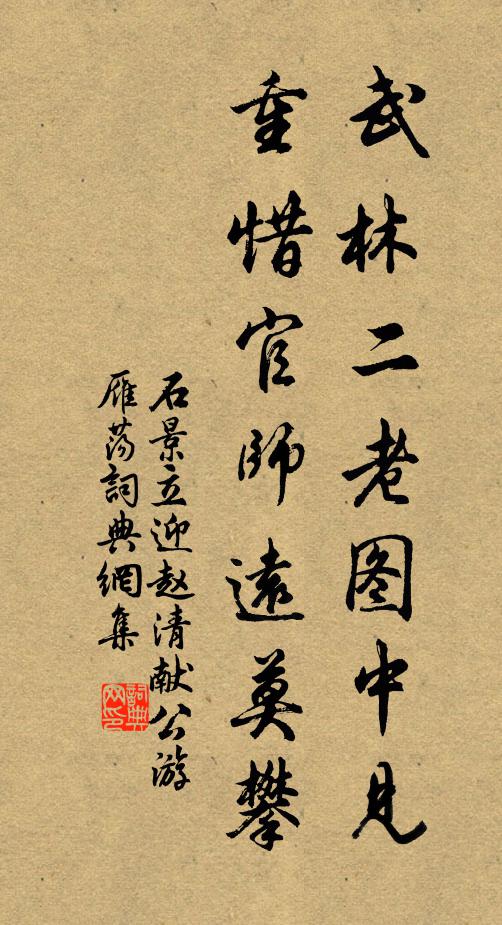 武林二老图中见
重惜官师遠莫攀
石景立迎赵清献公游
雁荡詞典網集
詞典网印